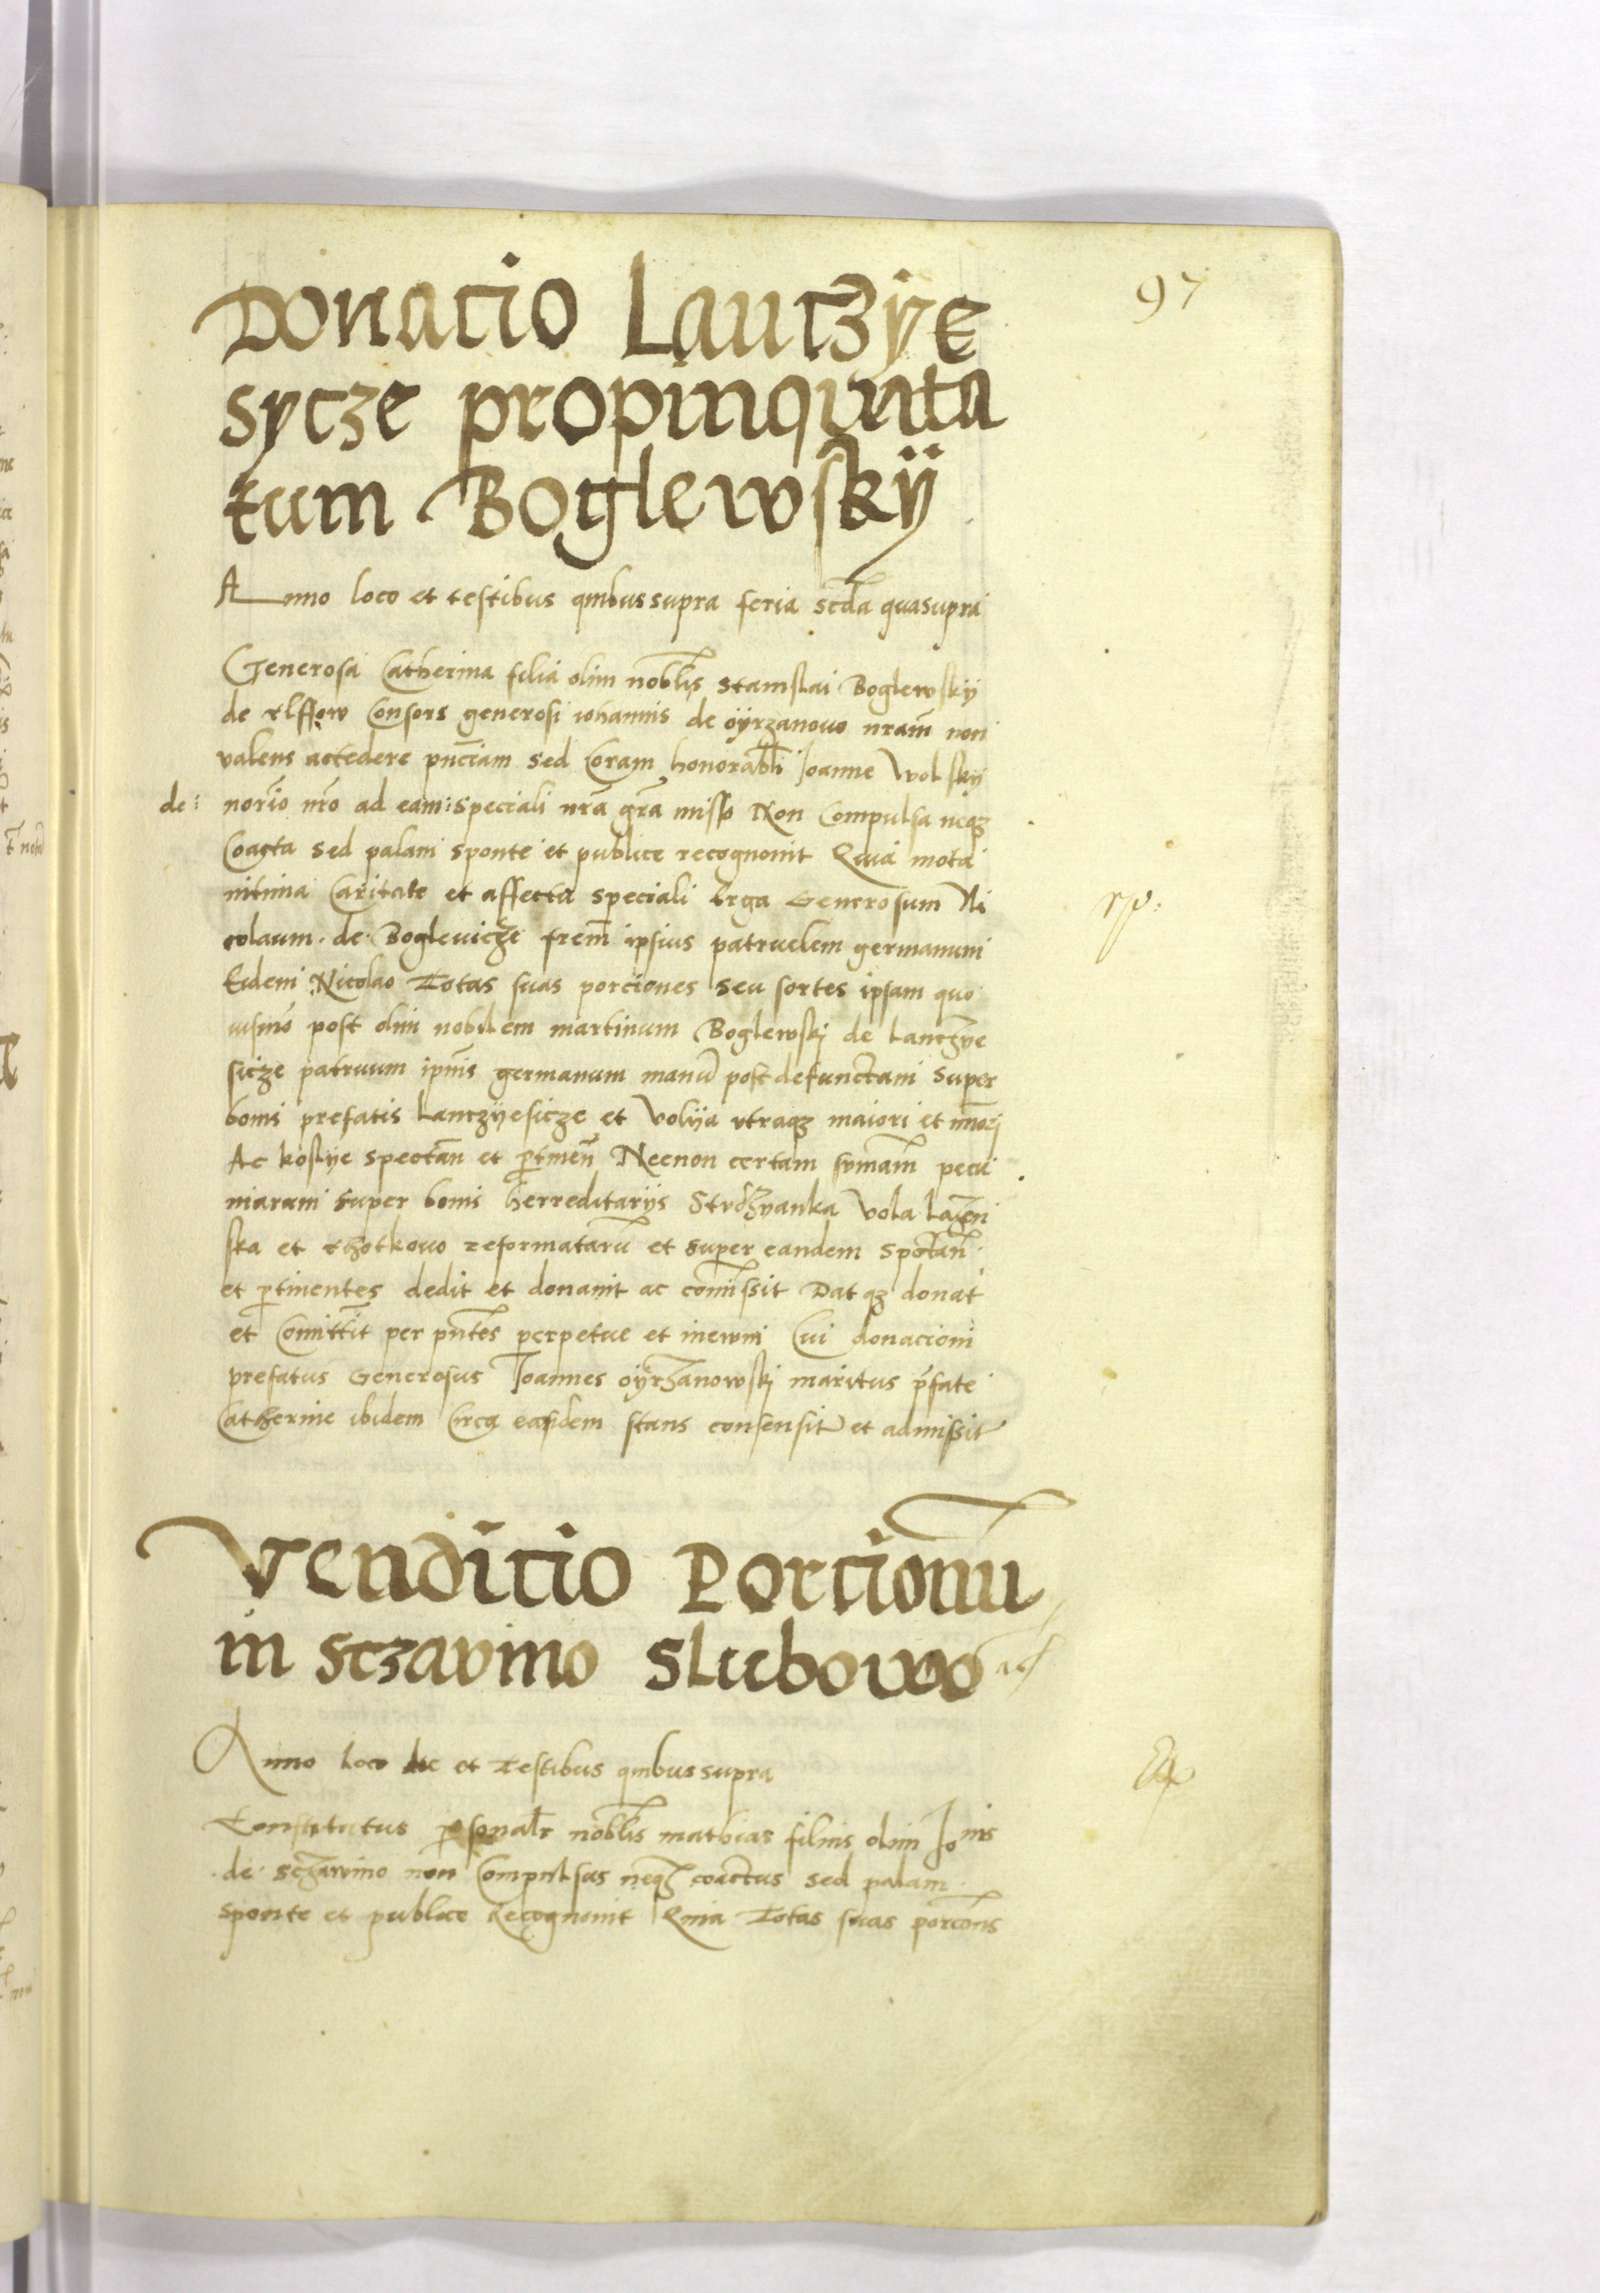 97
Donacio Lautzÿe
sycze propinquita
tum Boglewskÿ
Anno loco et testibus quibussupra feria scda quasupra
Generosa Catherina filia olim noblis Stanislai Boglewskÿ
de Consors generosi iohannis de oÿrzanowo nram non
valens accedere pnciam sed Coram honorabli Joanne Wolskÿ
de: norio nro ad eam: speciali nra gra misso Non Compulsa neqz
Coacta sed palam sponte et publice recognovit Quia mota
intima Caritate et affectu speciali Erga Generosum Ni
colaum de Boglevicze frem ipsius patruelem germanum
Eidem Nicolao Totas suas porciones seu sortes ipsam quo
vismo post olim nobilem martinum Boglewskj de Lanczye
sicze patruum ipius germanum manu post defunctam super
bonis prefatis Lanczÿesicze et Volÿa vtraqz maiori et mnorj
Ac koslye spectan et ptinen Necnon certam smam pecu
niaram super bonis herreditarijs Strdzyanka Vola Lazen
ska et reformataru et super eandem spectan
et ptinentes dedit et donavit ac comissit Dat qz donat
et Comittit per pntes perpetue et inewm Cui donacioni
prefatus Generosus Joannes oÿrzanowskj maritus pfate
Catherine ibidem Circa eandem stans consensit et admissit
Venditio Porcionu
in Sczavino Slubowo
Anno loco die et Testibus quibussupra
Constitutus psonalr noblis mathias filius olim Jonis
de Sczawino non Compulsus neqz coactus sed palam
sponte et publice Recognovit Quia Totas suas porcons